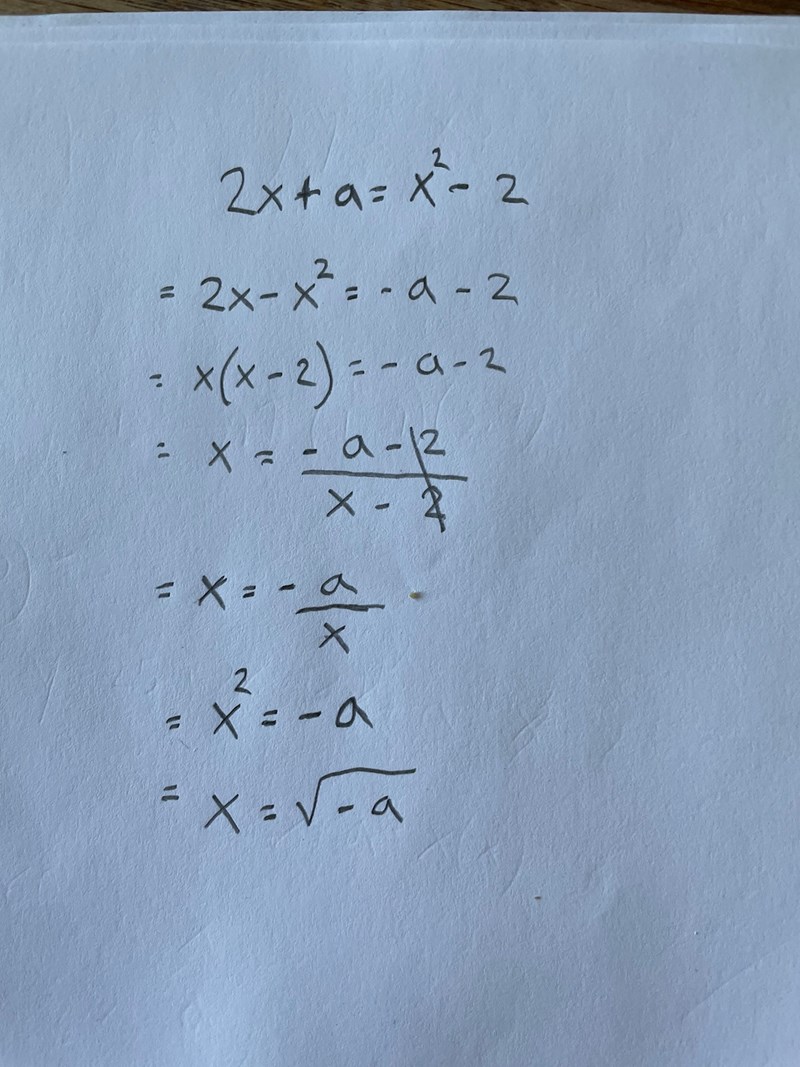 2x + a = x² - 2
= 2x - x² = - a - 2
= x(x - 2) = - a - 2
= x = - a - 2
x - 2
= x = - a
x
= x² = - a
= x = √- a